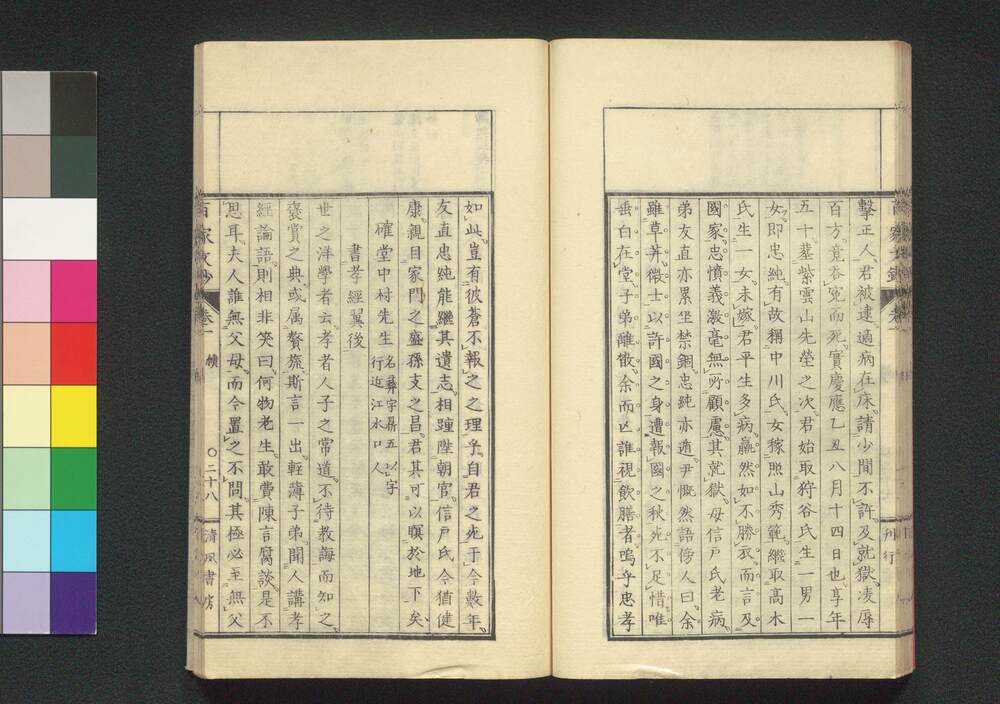 擊正人君被逮適病在床請少間不許及就獄凌辱
百方竟呑冤而死實慶應乙丑八月十四日也享年
五十葬紫雲山先塋之次君始取狩谷氏生一男一
女即忠純有故稱中川氏女嫁照山秀範繼取高木
氏生一女未嫁君平生多病羸然如不勝衣而言及
國家忠憤義激毫無所顧慮其就獄母信戶氏老病
弟友直亦累坐禁錮忠純亦遁尹慨然語傍人曰余
雖草莽微士以許國之身遭報國之秋死不足惜唯
垂白在堂子弟離散余而亡誰視飲膳者嗚乎忠孝
刊行
如此豈有彼蒼不報之之理乎自君之死于今數年
友直忠純能繼其遺志相踵陞朝官信戶氏今猶健
康親目家門之盛孫支之昌君其可以暝於地下矣
確堂中村先生 名彝字鼎五以字行近江水口人
書孝經翼後
世之洋學者云孝者人子之常道不待教誨而知之
褒賞之典或属贅旒斯言一出輕薄子弟聞人講孝
經論語則相非笑曰何物老生敢費陳言腐談是不
思耳夫人誰無父母而今置之不問其極必至無父
百家文鈔 卷一 續 〇二十八 清風書房